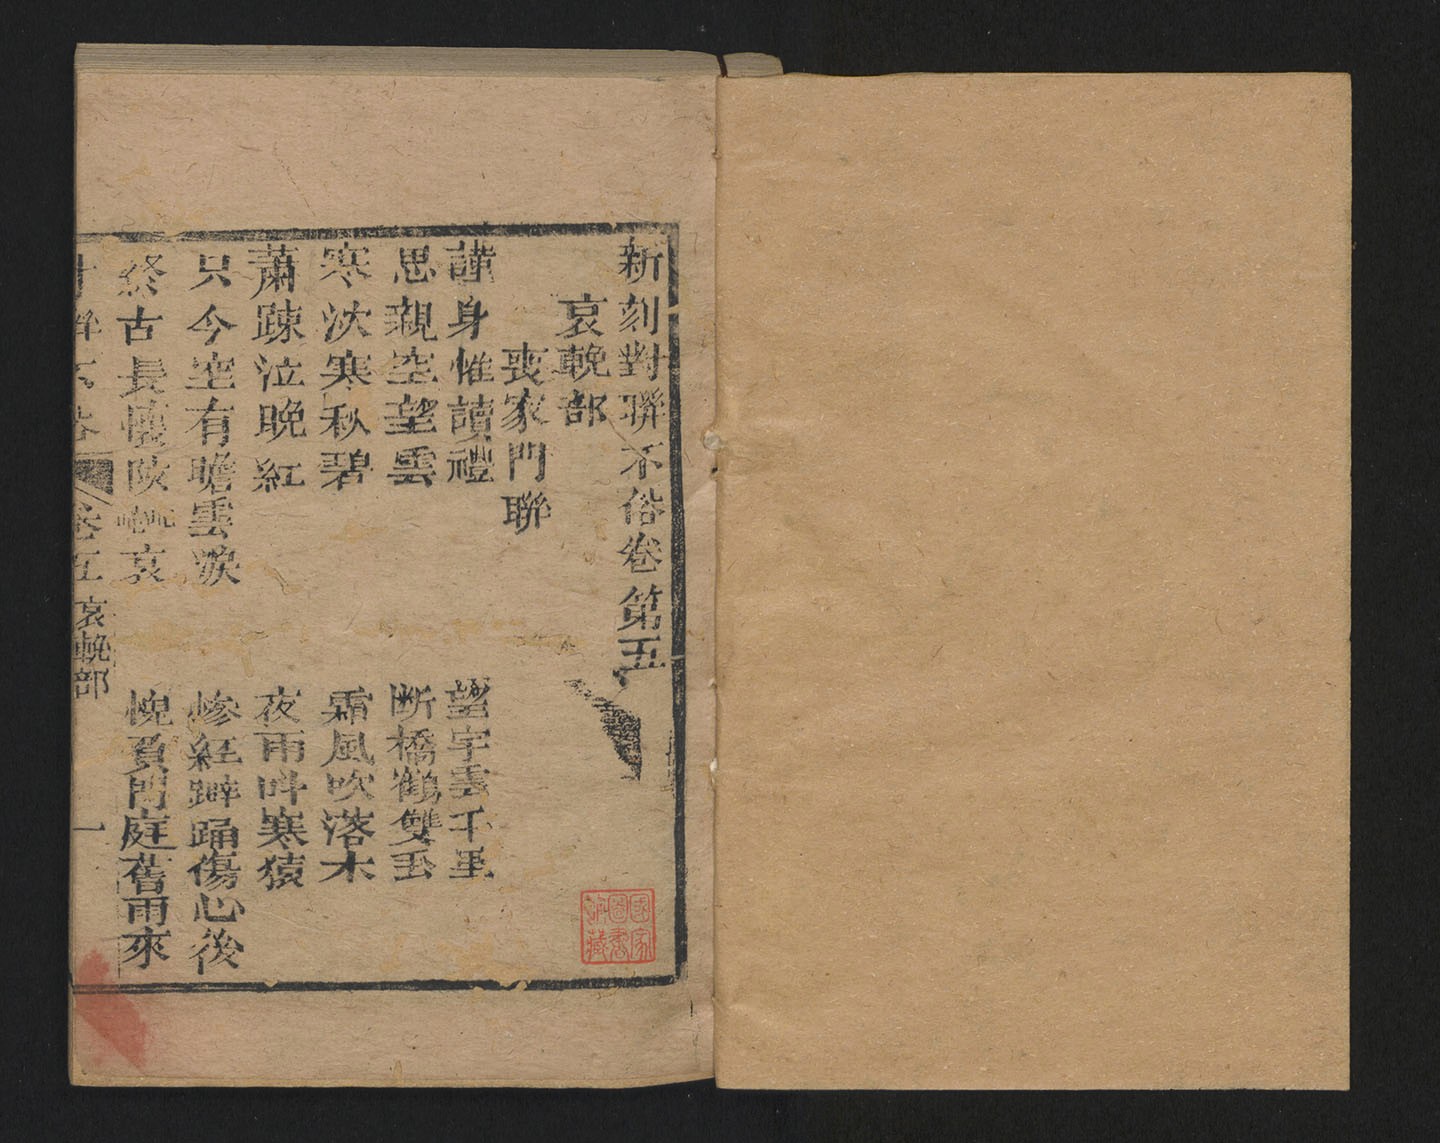 新刻對聯不俗卷第五
哀輓部
喪家門聯
謹身惟讀禮 望宇雲千里
思親空望雲 断橋鶴雙
寒沈寒秋碧 霜風吹落木
蕭踈泣晚紅 夜雨呌寒猿
只今空有瞻雲淚 惨經擗踊傷心後
終古長懷陟岵哀 愧負門庭舊雨來
對聯不俗 卷五 哀輓部 一
國家圖書藏